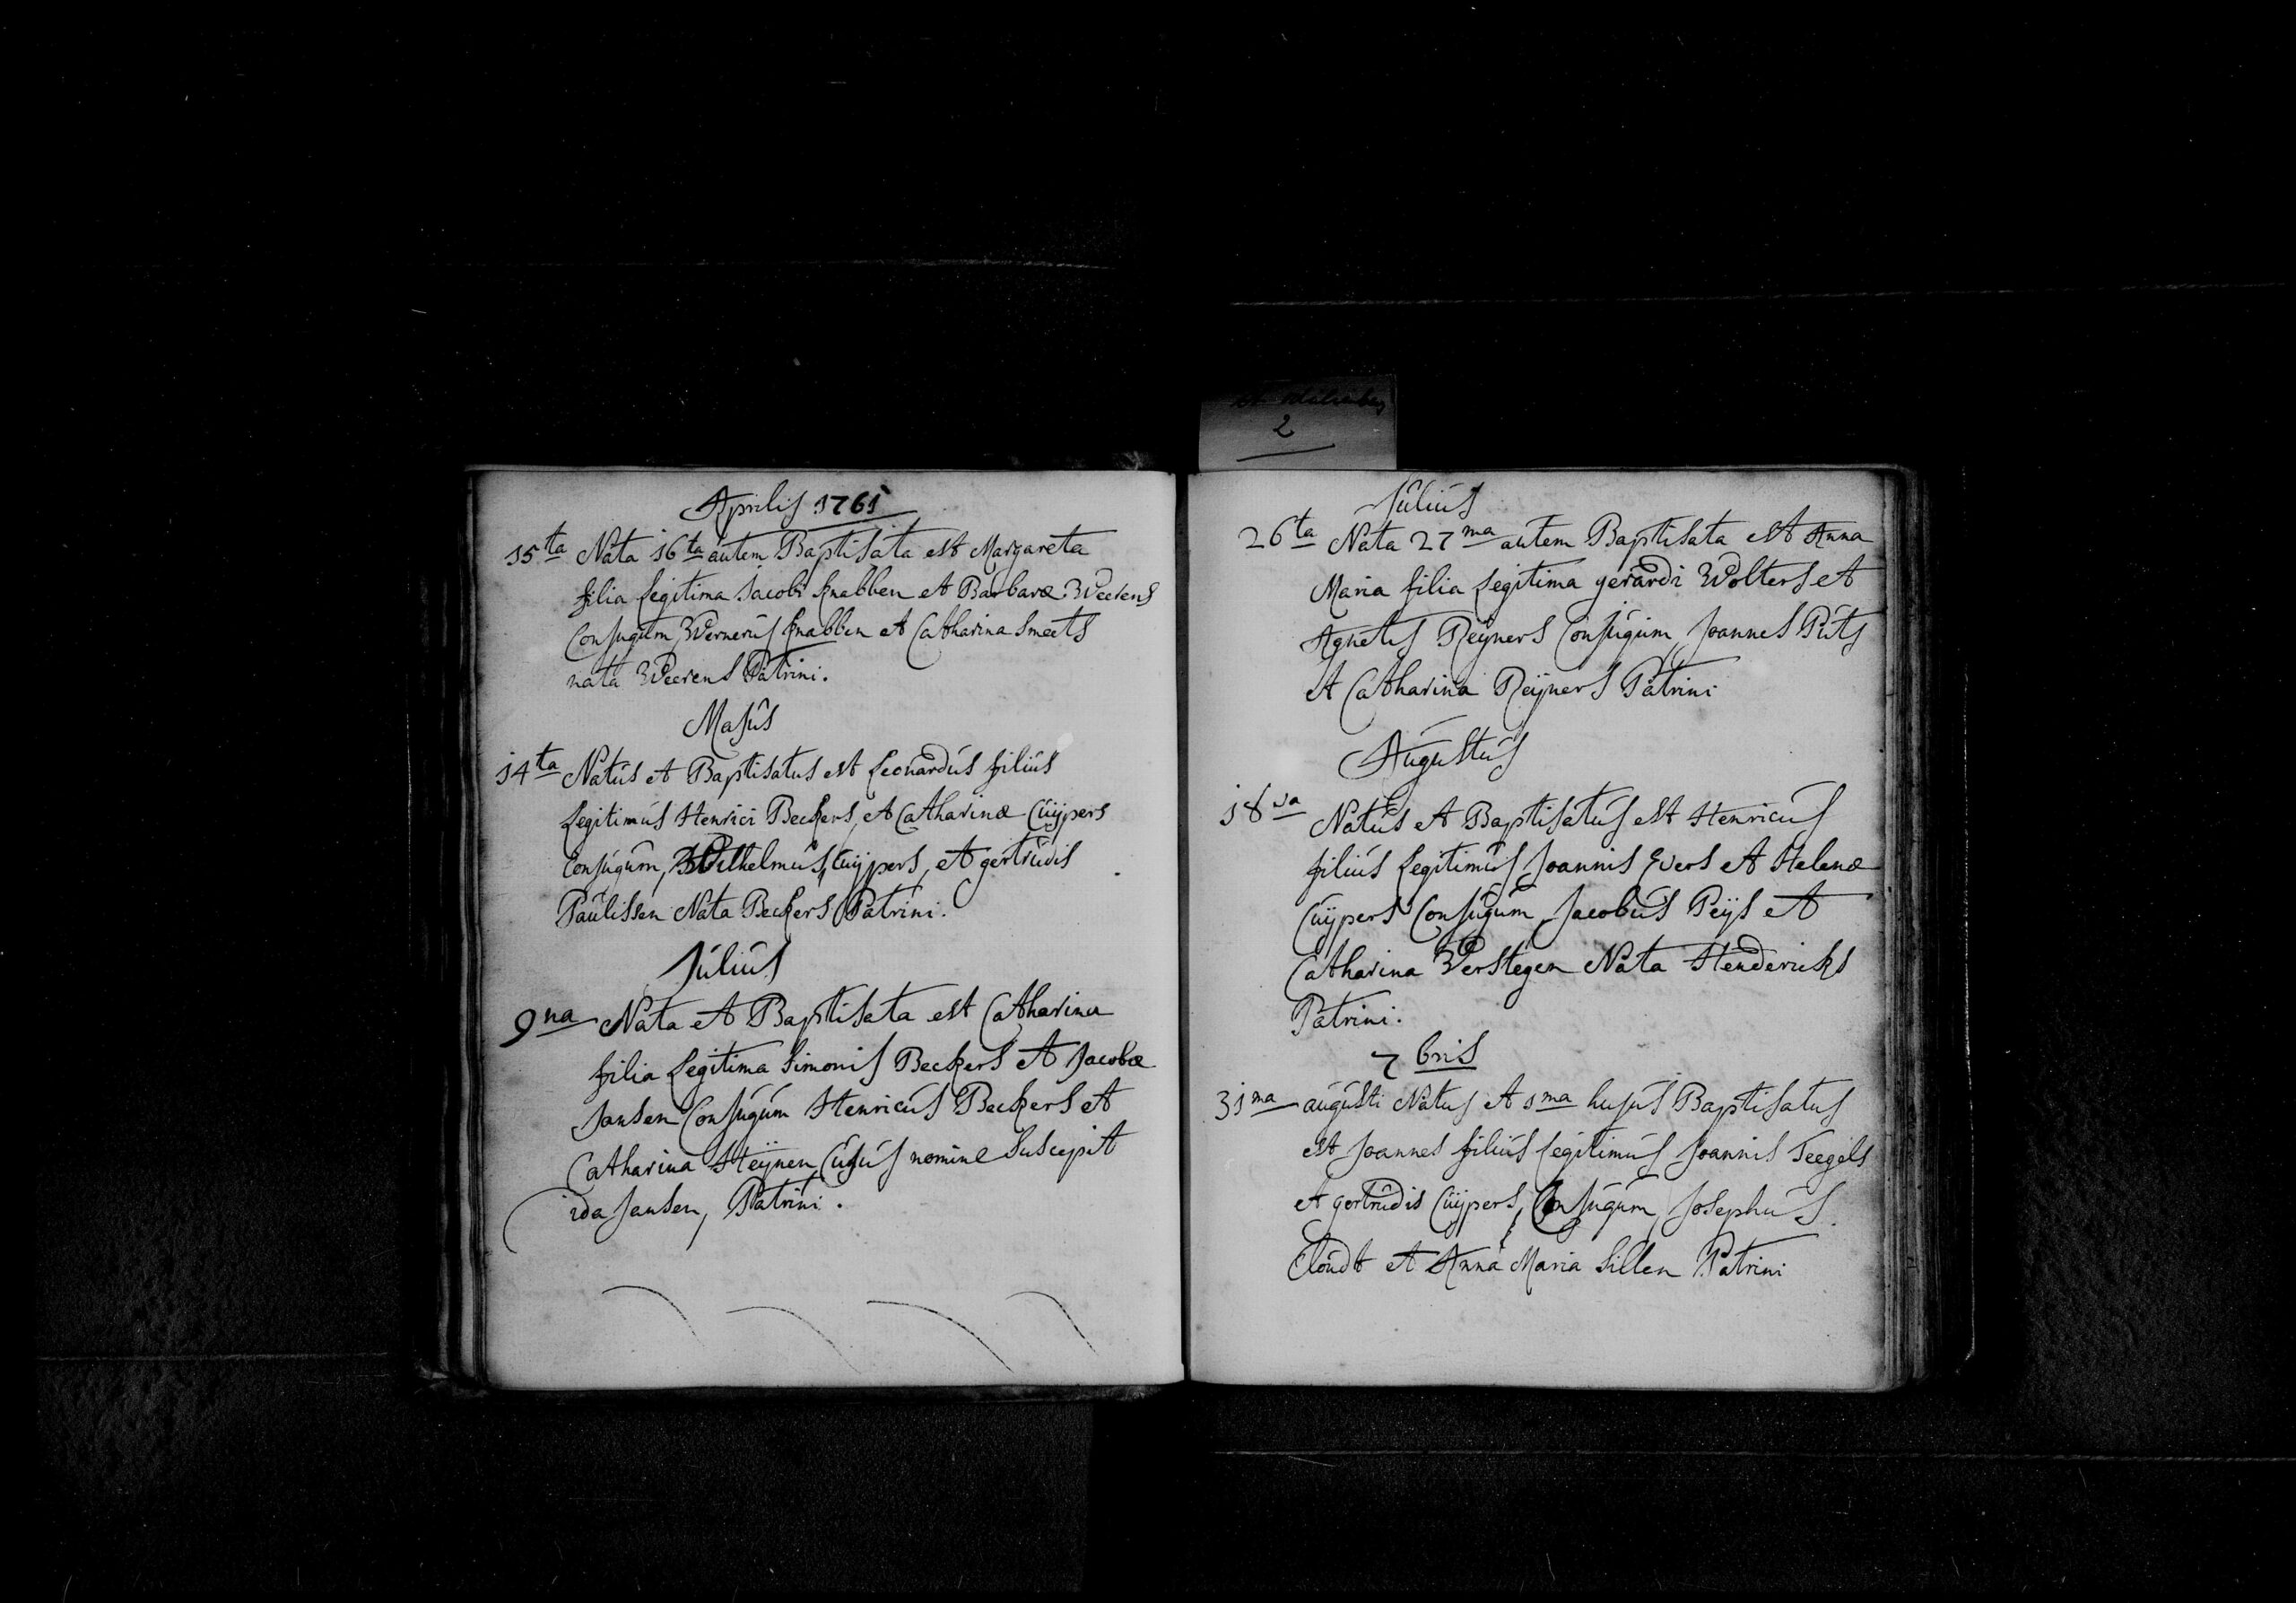 Aprilis 1761
15ta Nata 16ta autem Baptisata est Margareta
filia legitima Jacobi Knabben et Barbaræ Weerens
Conjugum Wernerus Knabben et Catharina Smeets
nata Weerens Patrini.
Majus
14ta Natus et Baptisatus est Leonardus filius
legitimus Henrici Beckers, et Catharinæ Cuÿpers
Conjugum, Wilhelmus Cuÿpers, et gertrudis
Paulissen Nata Beckers Patrini.
Julius
9na Nata et Baptisata est Catharina
filia legitima Simonis Beckers et Jacobæ
Jansen Conjugum Henricus Beckers et
Catharina Heÿnen, Cujus nomine Suscepit
ida Jansen, Patrini.
2
Julius
26ta Nata 27ma autem Baptisata est Anna
Maria filia legitima gerardi Wolters et
Agnetis Reÿners Conjugum, Joannes Puts
et Catharina Reÿners Patrini
Augustus
18va Natus et Baptisatus est Henricus
filius legitimus Joannis Evers et Helenæ
Cuÿpers Conjugum, Jacobus Peÿs et
Catharina Verstegen Nata Hendericks
Patrini.
7bris
31ma augusti Natus et 1ma hujus Baptisatus
est Joannes filius legitimus Joannis Teegels
et gertrudis Cuÿpers, Conjugum, Josephus
Cloudt et Anna Maria Sillen Patrini